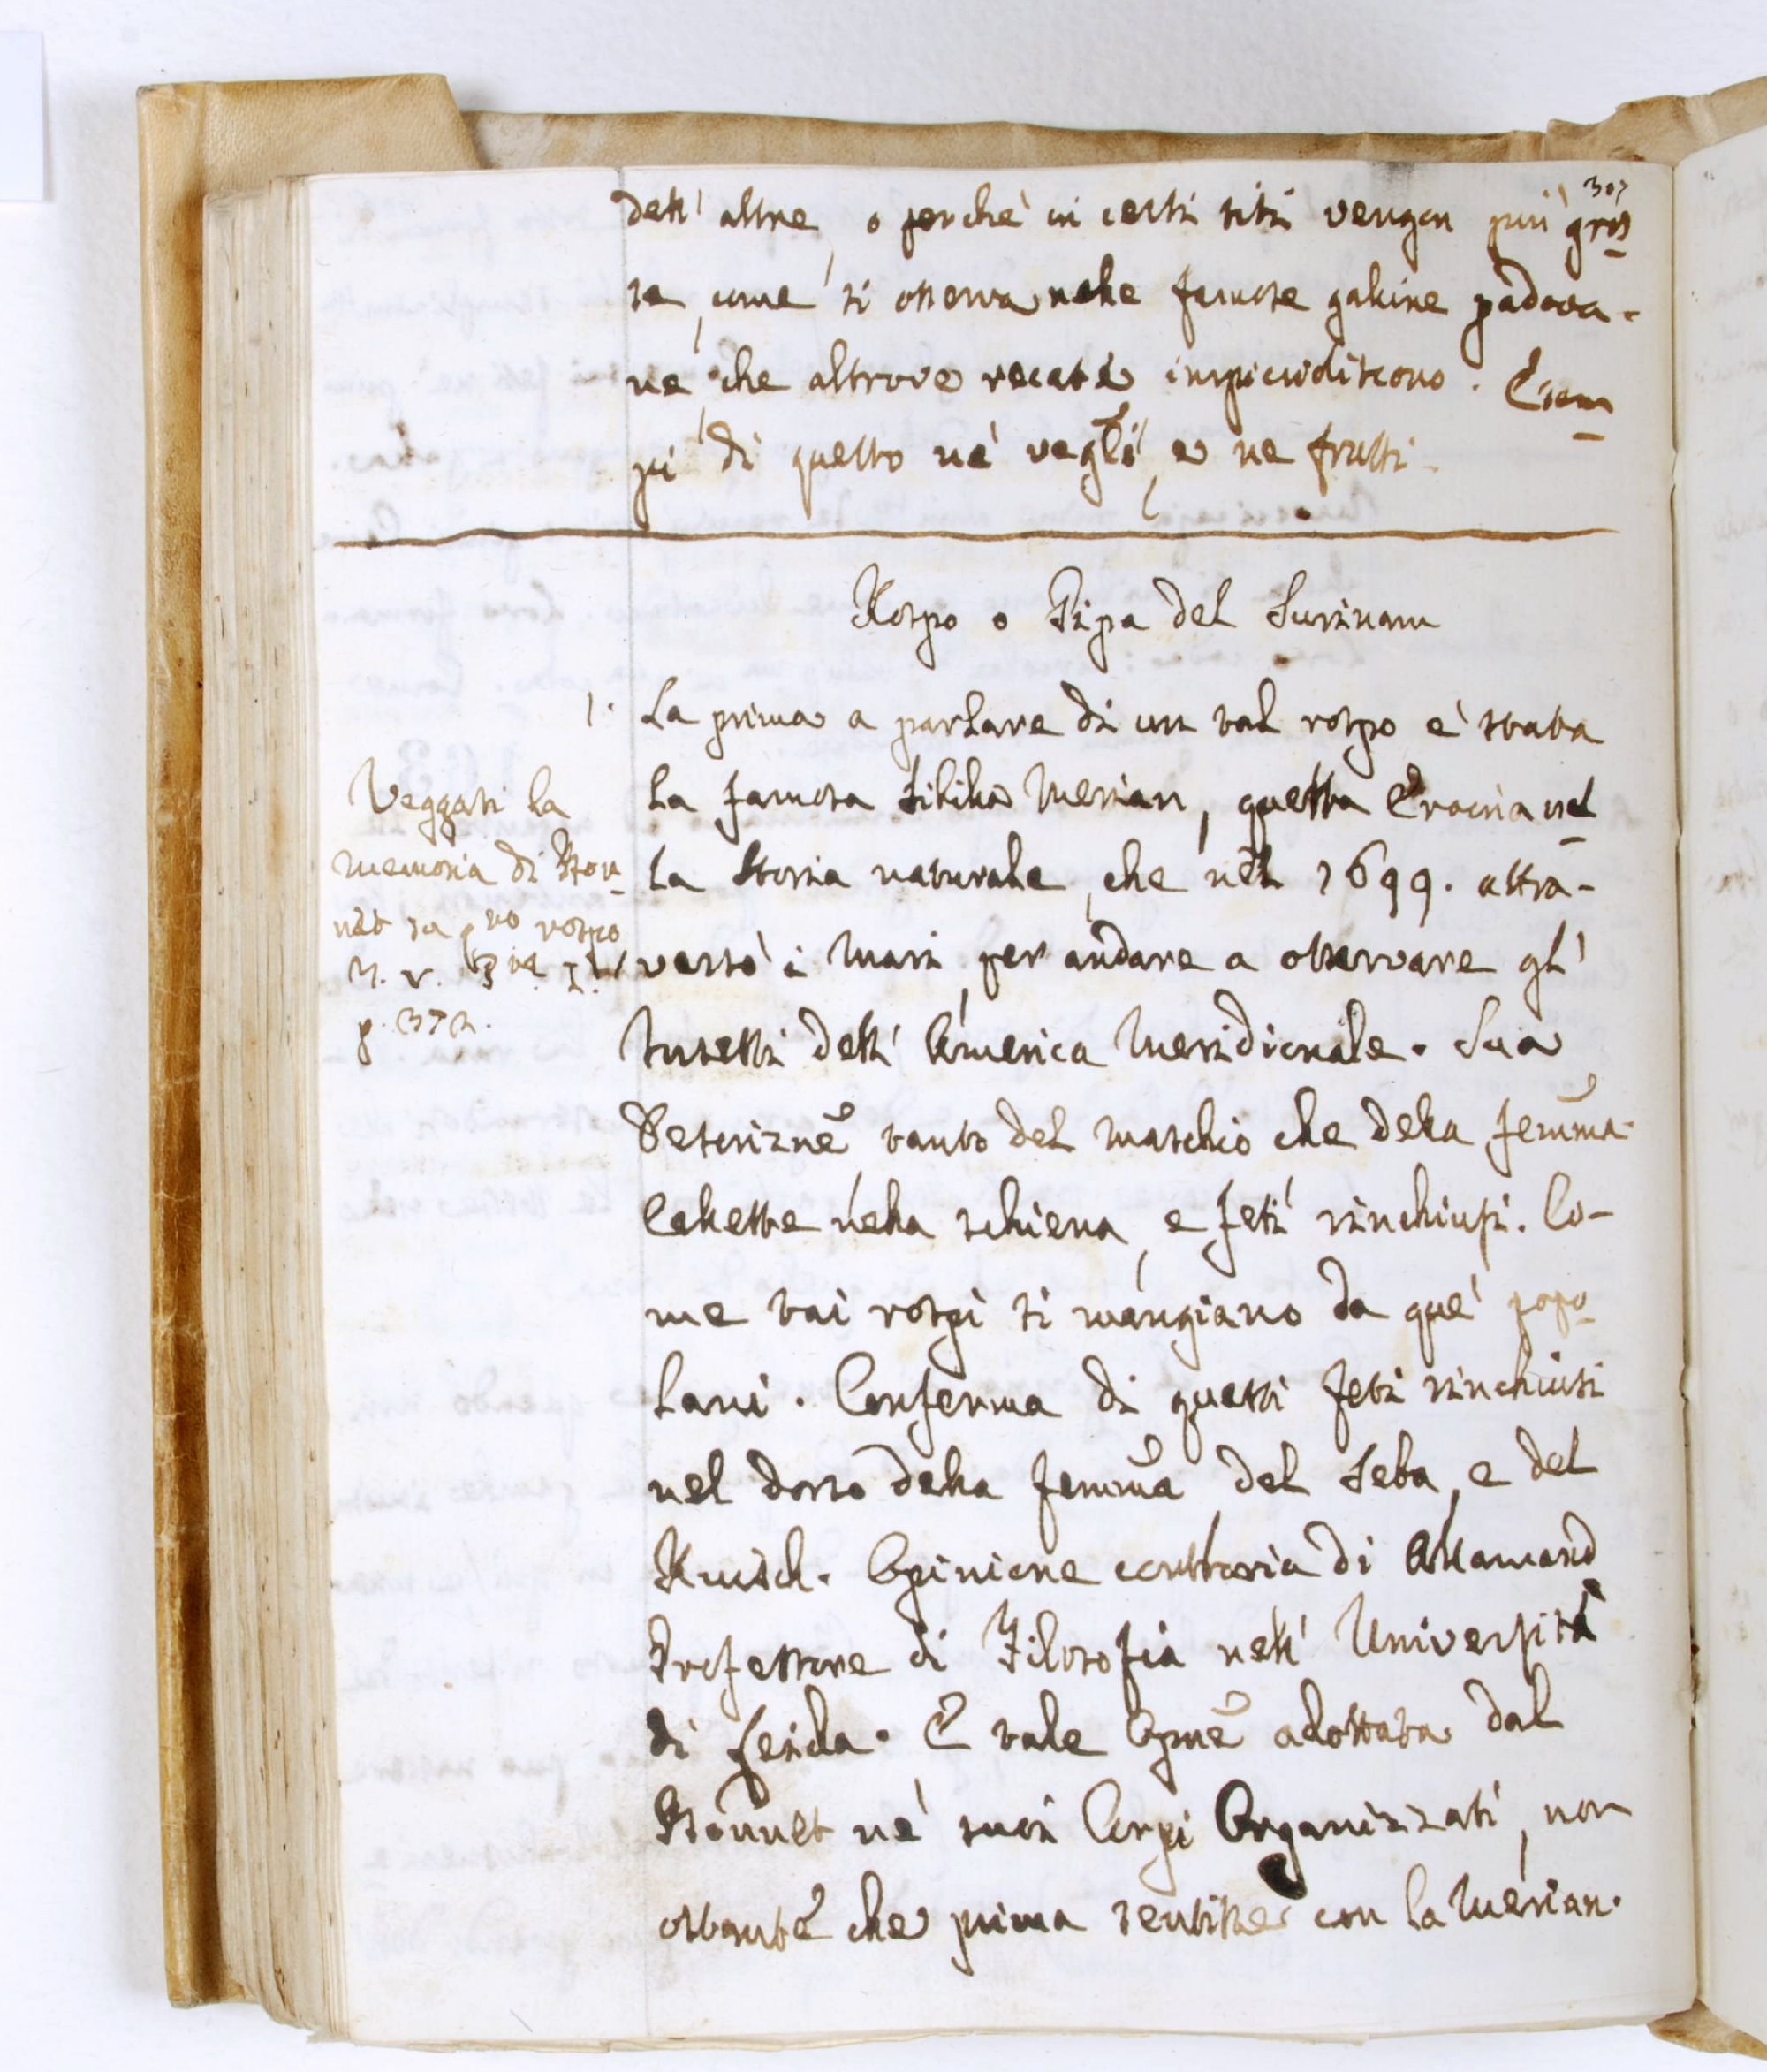 307
dell' altre, o perchè in certi siti vengon più gros
se, come si osserva nelle famose galline padova-
ne che altrove recate impiccioliscono. Esem
pi di questo ne' vegli, e ne frutti.
Rospo o Pipa del Surinam
1. La prima a parlare di un tal rospo è stata
la famosa Sibilla Merian, questa Eroina nel
la Storia naturale, che nel 1699. attra-
versò i Mari per andare a osservare gl'
Insetti dell' America Meridionale. Sua
Descrizne tanto del maschio che della femma.
Cellette nella schiena, e feti rinchiusi. Co-
me tai rospi si mangiano da que' popo
lani. Conferma di questi feti rinchiusi
nel dorso della femma del Seba, e del
Ruisch. Opinione contraria di Allamand
Professore di Filosofia nell' Università
di Leida. E tale opne adottata dal
Bonnet ne' suoi Corpi Organizzati, non
ostante che prima sentisse con la Merian.
Veggasi la
memoria di Bon
net su qto rospo
p. 372.